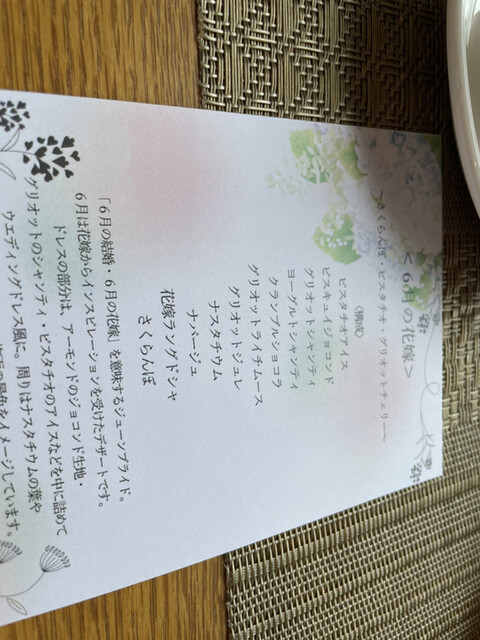 ＜6月の花嫁＞
～さくらんぼ・ピスタチオ・グリオットチェリー～
〈構成〉
ピスタチオアイス
ビスキュイジョコンド
グリオットシャンティ
ヨーグルトシャンティ
クランブルショコラ
グリオットライチムース
グリオットジュレ
ナスタチウム
ナパージュ
花嫁ラングドシャ
さくらんぼ
「6月の結婚・6月の花嫁」を意味するジューンブライド。
6月は花嫁からインスピレーションを受けたデザートです。
ドレスの部分は、アーモンドのジョコンド生地・
グリオットのシャンティ・ピスタチオのアイスなどを中に詰めて
ウエディングドレス風に。周りはナスタチウムの葉や
景色をイメージしています。